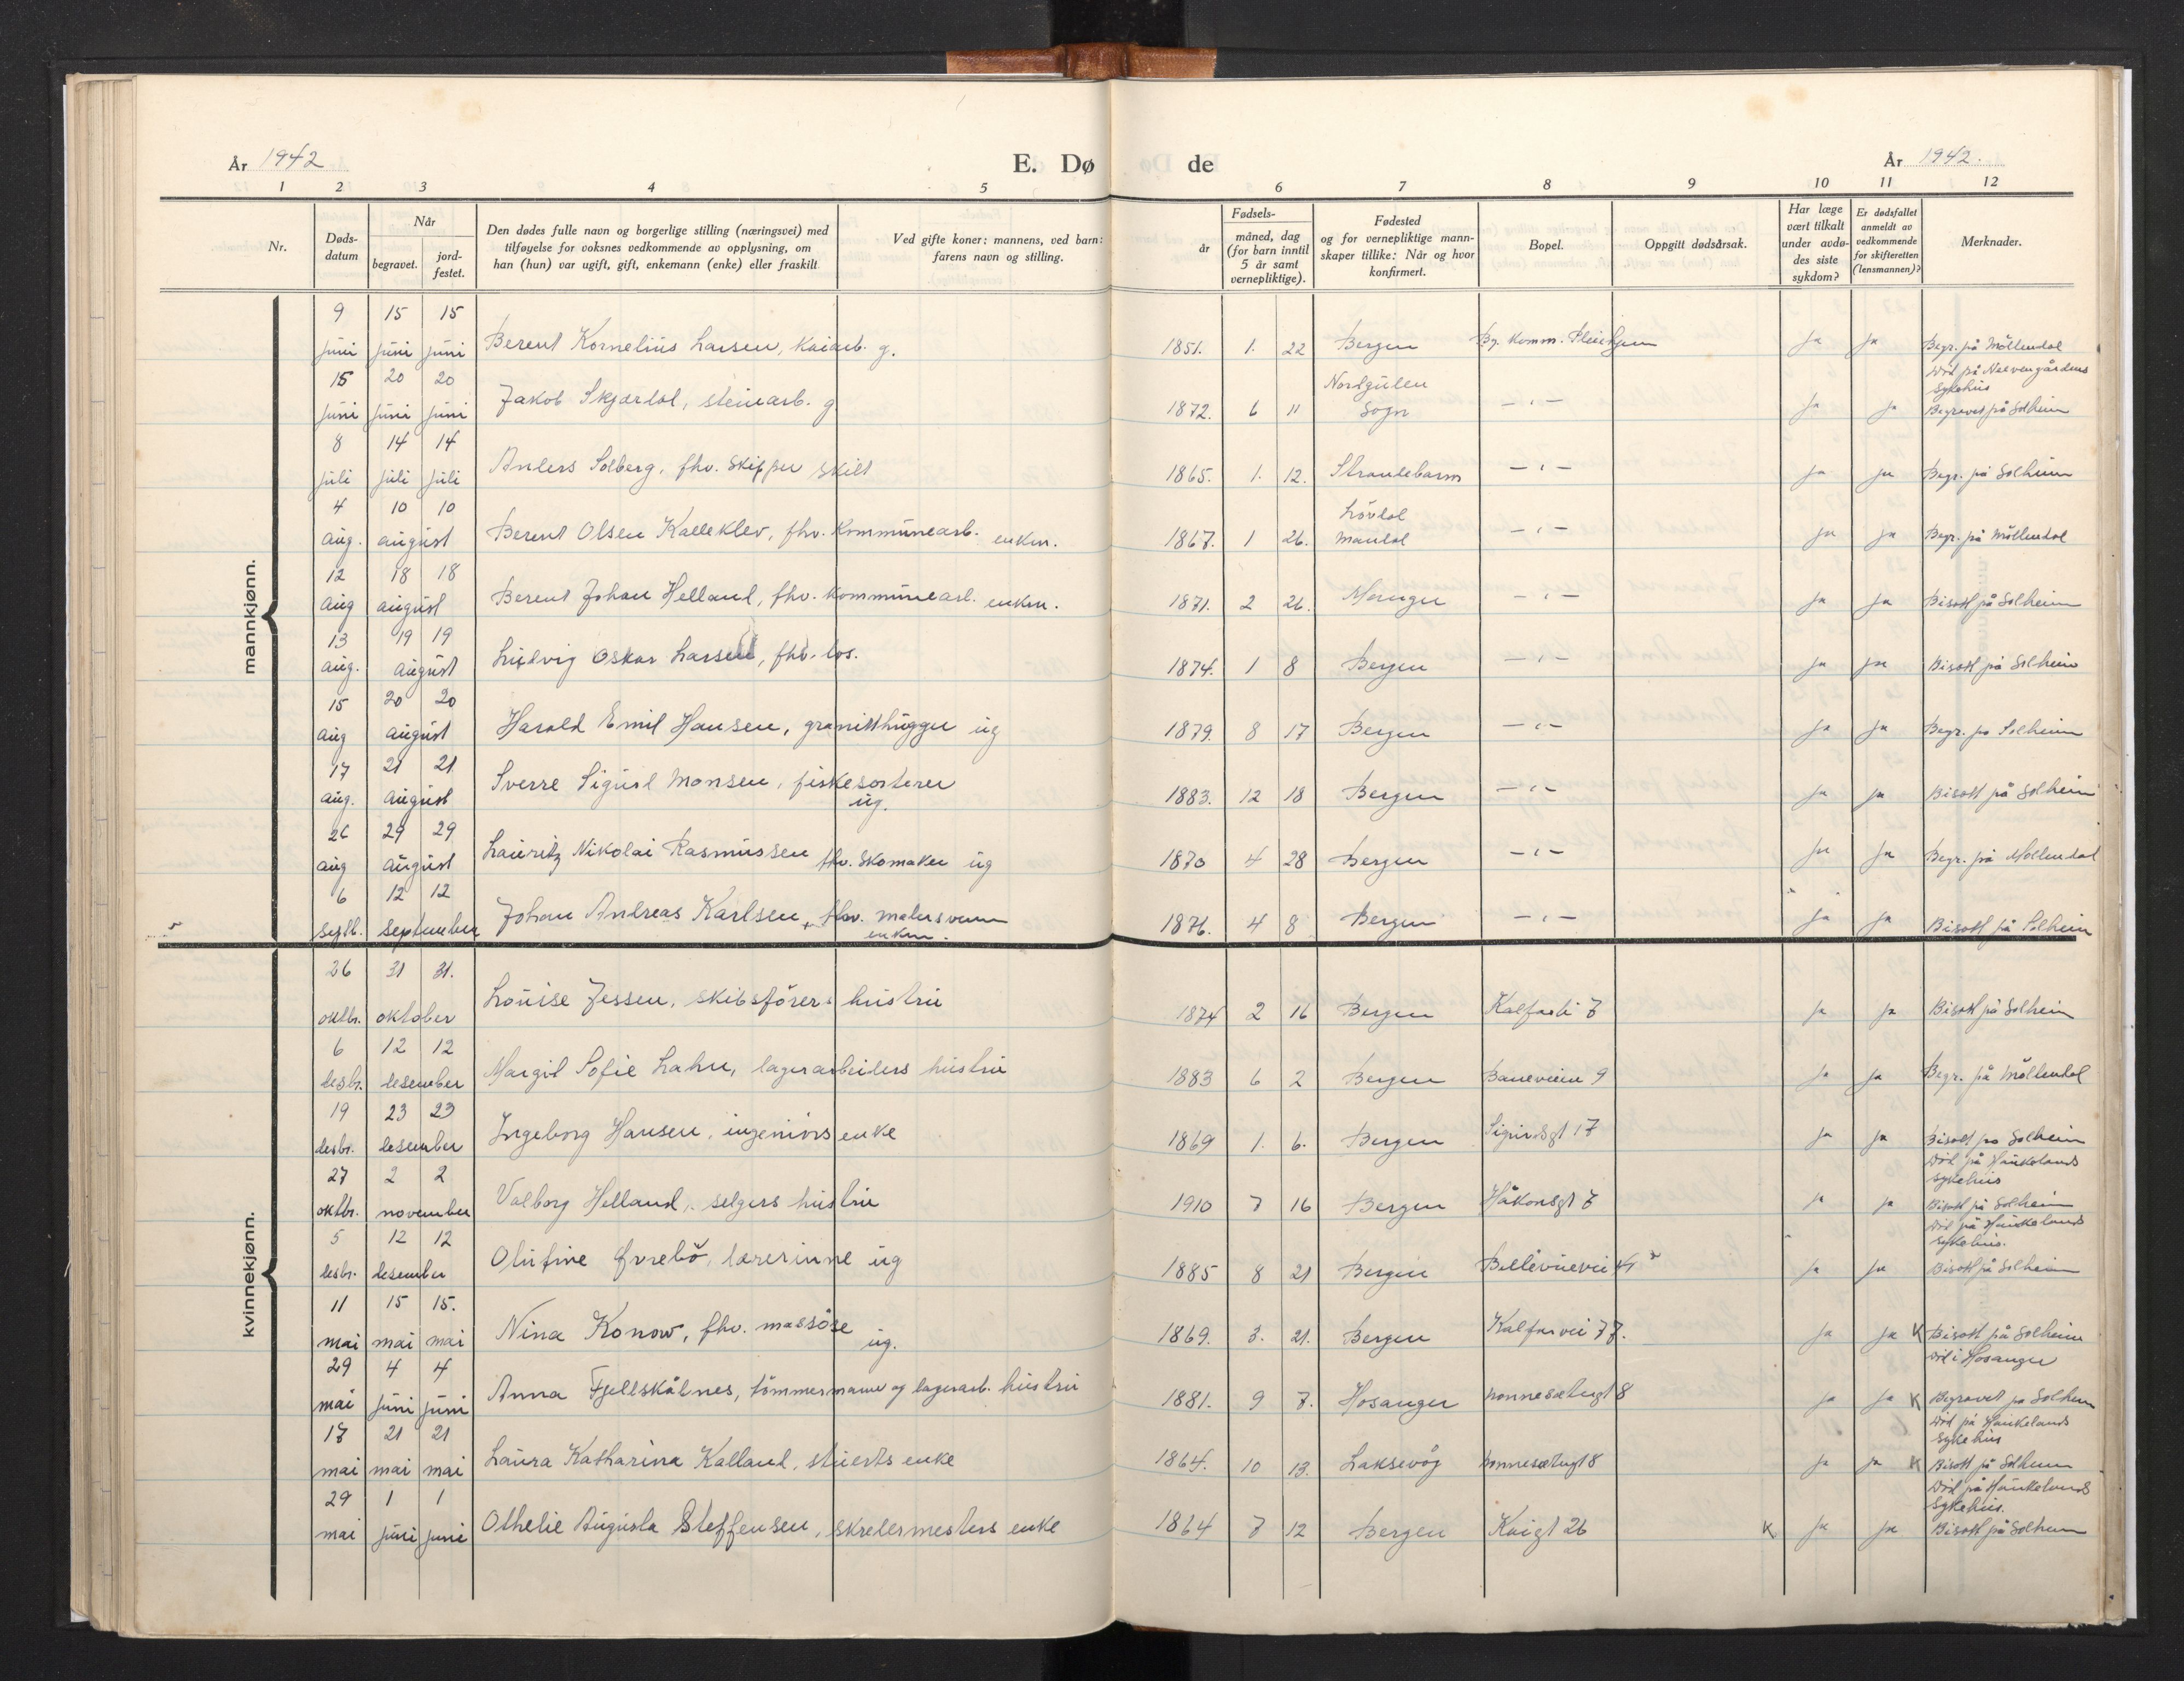 År 1942 E. Dø de År 1942.
1 2 3 4 5 6 7 8 9 10 11 12
Nr.
Døds-
datum
Når
begravet.
jord-
festet.
Den dødes fulle navn og borgerlige stilling (næringsvei) med
tilføyelse for voksnes vedkommende av opplysning, om
han (hun) var ugift, gift, enkemann (enke) eller fraskilt
Ved gifte koner: mannens, ved barn:
farens navn og stilling.
Fødsels-
år
måned, dag
(for barn inntil
5 år samt
vernepliktige).
Fødested
og for vernepliktige mann-
skaper tillike: Når og hvor
konfirmert.
Bopel.
Oppgitt dødsårsak.
Har læge
vært tilkalt
under avdø-
des siste
sykdom?
Er dødsfallet
anmeldt av
vedkommende
for skifteretten
(lensmannen)?
Merknader.
mannkjønn.
9 15 15
juni juni juni Berent Kornelius Larsen, kaiarb. g. 1851. 1. 22 Bergen By. komm. Pleiehjem ja ja Begr. på Möllendal
15 20 20 Nordgulen Död på Neevengårdens
sykehus
juni juni juni Jakob Skjærdal, steinarb. g 1872. 6 11 Sogn - " - ja ja Begravet på Solheim
8 14 14
juli juli juli Anders Solberg, fhv. skipper skilt 1865. 1. 12. Strandebarm - " - ja ja Begr. på Solheim
4 10 10 Lövdal
aug. august Berent Olsen Kalleklev, fhv. kommunearb. enkm. 1867. 1 26. Mandal - " - ja ja Begr. på Möllendal
12 18 18
aug august Berent Johan Helland, fhv. kommunearb. enkm. 1871. 2 26. Manger - " - ja ja Bisatt på Solheim
13 19 19
aug. august Ludvig Oskar Larsen, fhv. los. 1874. 1 8 Bergen - " - ja ja Bisatt på Solheim
15 20 20
aug august Harald Emil Hansen, granitthugger ug 1879. 8 17 Bergen - " - ja ja Begr. på Solheim
17 21 21
aug. august Sverre Sigurd Monsen, fiskesorterer
ug. 1883. 12 18 Bergen - " - ja ja Bisatt på Solheim
26 29 29
aug august Lauritz Nikolai Rasmussen fhv. skomaker ug 1870 4 28 Bergen - " - ja ja Begr. på Möllendal
6 12 12
septb. september Johan Andreas Karlsen, fhv. malersvenn
enkm. 1876. 4 8 Bergen - " - ja ja Bisatt på Solheim
kvinnekjønn.
26 31 31.
oktbr. oktober Louise Jessen, skibsförers hustru 1874 2 16 Bergen Kalfarli 7 ja ja Bisatt på Solheim
6 12 12
desbr. desember Margit Sofie Lahn, lagerarbeiders hustru 1883 6 2 Bergen Baneveien 9 ja ja Begr. på Möllendal
19 23 23
desbr. desember Ingeborg Hansen, ingeniörs enke 1869 1. 6. Bergen Sigurdsgt 17 ja ja Bisatt på Solheim
27 2 2 Död på Haukelands
sykehus
oktbr. november Valborg Helland, selgers hustru 1910 7 16 Bergen Håkonsgt 7 ja ja Bisatt på Solheim
5 12 12 Död på Haukelands
sykehus.
desbr. desember Olufine Øvrebö, lærerinne ug 1885 8 21 Bergen Bellevuevei 4 ja ja Bisatt på Solheim
11 15 15.
mai mai mai Nina Konow, fhv. massöse ug. 1869. 3. 21. Bergen Kalfarvei 77. ja ja K Bisatt på Solheim
29 4 4 Död i Hosanger
mai juni juni Anna Fjellskålnes, tömmermanns og lagerarb. hustru 1881. 9 7. Hosanger Nonnesætergt 8 ja ja K Begravet på Solheim
17 21 21 Död på Haukelands
sykehus
mai mai mai Laura Katharina Kalland, stuerts enke 1864. 10 13. Laksevåg Nonnesætergt 8 ja ja K Bisatt på Solheim
29 1 1 Död på Haukelands
sykehus.
mai juni juni Othelie Augusta Steffensen, skredermesters enke 1864 7 12 Bergen Kaigt 26 K ja ja Bisatt på Solheim